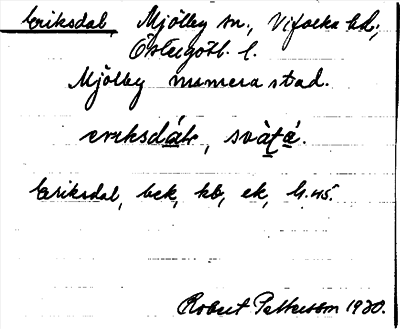 Eriksdal, Mjölby sn., Vifolka hd.,
Östergötl. l.
Mjölby numera stad.
eriksdálr, svàtá.
Eriksdal, bek, kb, ek, G. 45.
Robert Pettersson 1930.